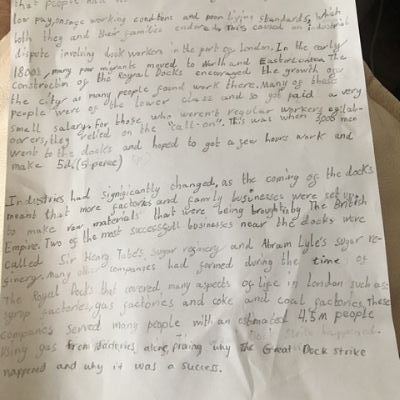 that people had
low pay, onsage working condtions and poor living standards, which
both they and their families endure to. This caused an industrial
dispute involving dock workers in the port of London. In the early
1800s, many poor migrants moved to North and East London. The
Construction of the Royal Docks encouraged the growth of
the city as many people found work there. Many of these
people were of the lower class and so got paid a very
small salary. For those who weren't regular workers or lab-
ourers, they relied on the "call-on". This was when 3,000 men
went to the docks and hoped to get a few hours work and
make 5d. (5 pence)
Industries had significantly changed, as the coming of the docks
meant that more factories and family businesses were set up
to make raw materials that were being brought by The British
Empire. Two of the most successfull businesses near the docks were
called Sir Henry Tate's, sugar refinery and Abram Lyle's sugar re-
finery. Many other companies had formed during the time of
The Royal Docks that covered many aspects of life in London such as:
syrup factories, gas factories and coke and coal factories. These
companies served many people with an estimated 4.5 m people
using gas from factories alone, proving why The Great Dock strike
happened and why it was a success.